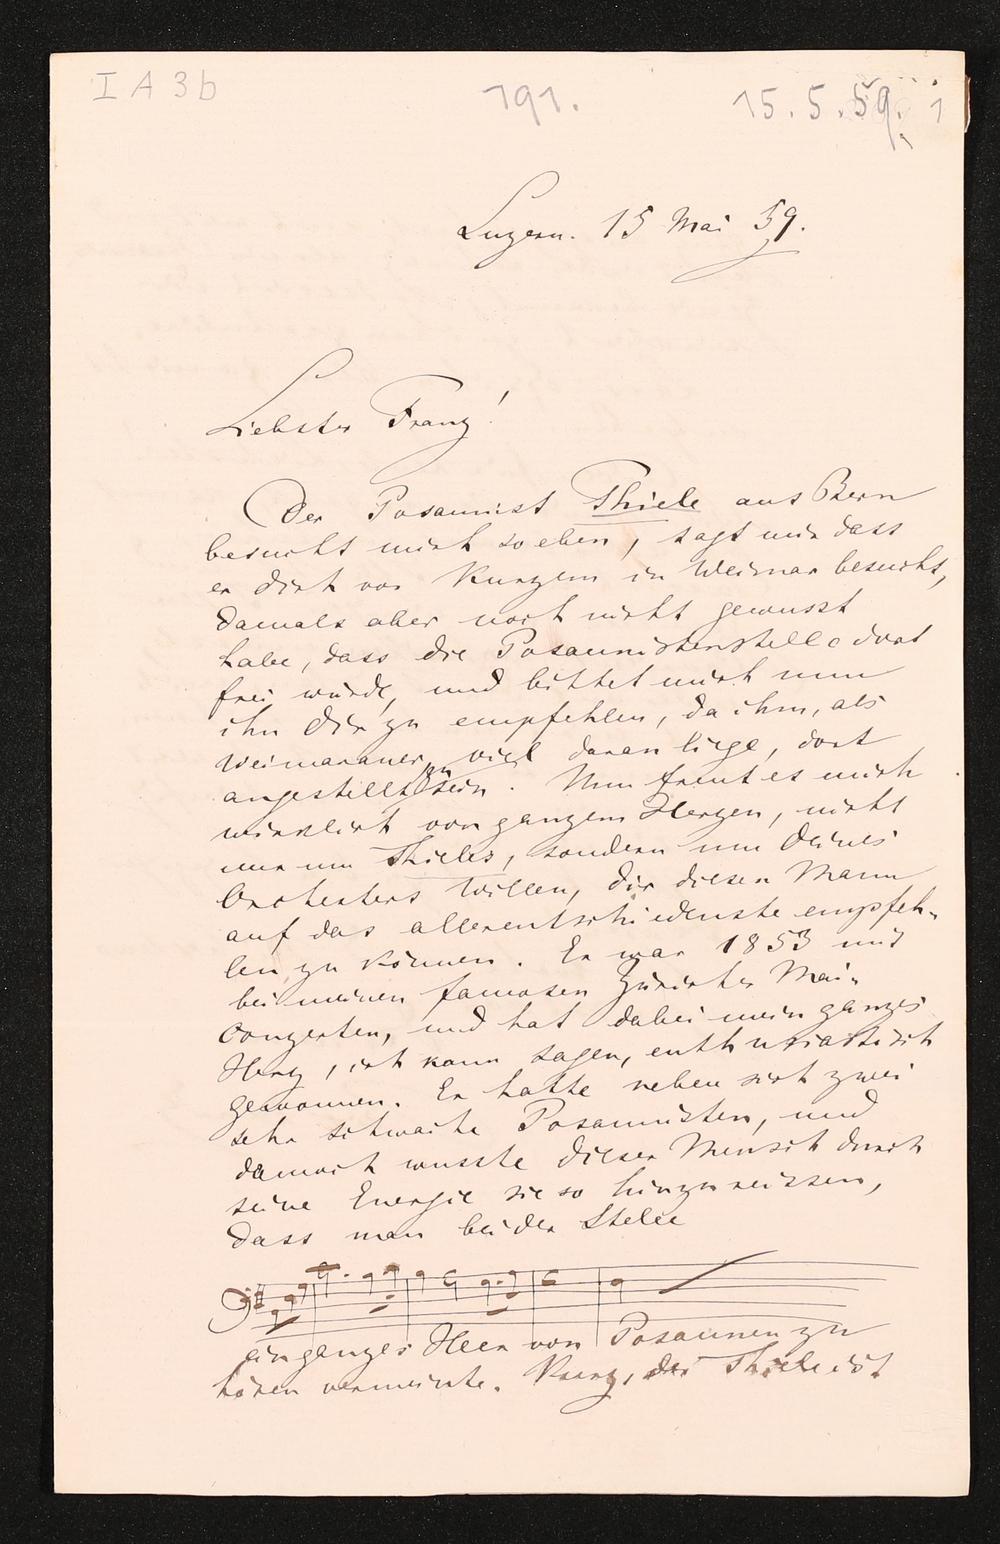 I A 3b
191.
15.5.59. 1
Luzern. 15 Mai 59.
Liebster Franz!
Der Posaunist Thiele aus Bern
besucht mich so eben, sagt mir dass
er dich vor Kurzem in Weimar besucht,
damals aber noch nicht gewusst
habe, dass die Posaunistenstelle dort
frei würde, und bittet mich nun
ihn Dir zu empfehlen, da ihm, als
Weimaraner, viel daran liege, dort
angestellt zu sein. Nun freut es mich
wirklich von ganzem Herzen, nicht
nur um Thieles, sondern um Deines
Orchesters Willen, dir diesen Mann
auf das allerentschiedenste empfeh-
len zu können. Er war 1853 mit
bei meinen famosen Züricher Mai-
Conzerten, und hat dabei mein ganzes
Herz, ich kann sagen, enthusiastisch
gewonnen. Er hatte neben sich zwei
sehr schwache Posaunisten, und
dennoch wusste dieser Mensch durch
seine Energie sie so hinzureissen,
dass man bei der Stelle
ein ganzes Heer von Posaunen zu
hören vermeinte. Kurz, der Thiele ist